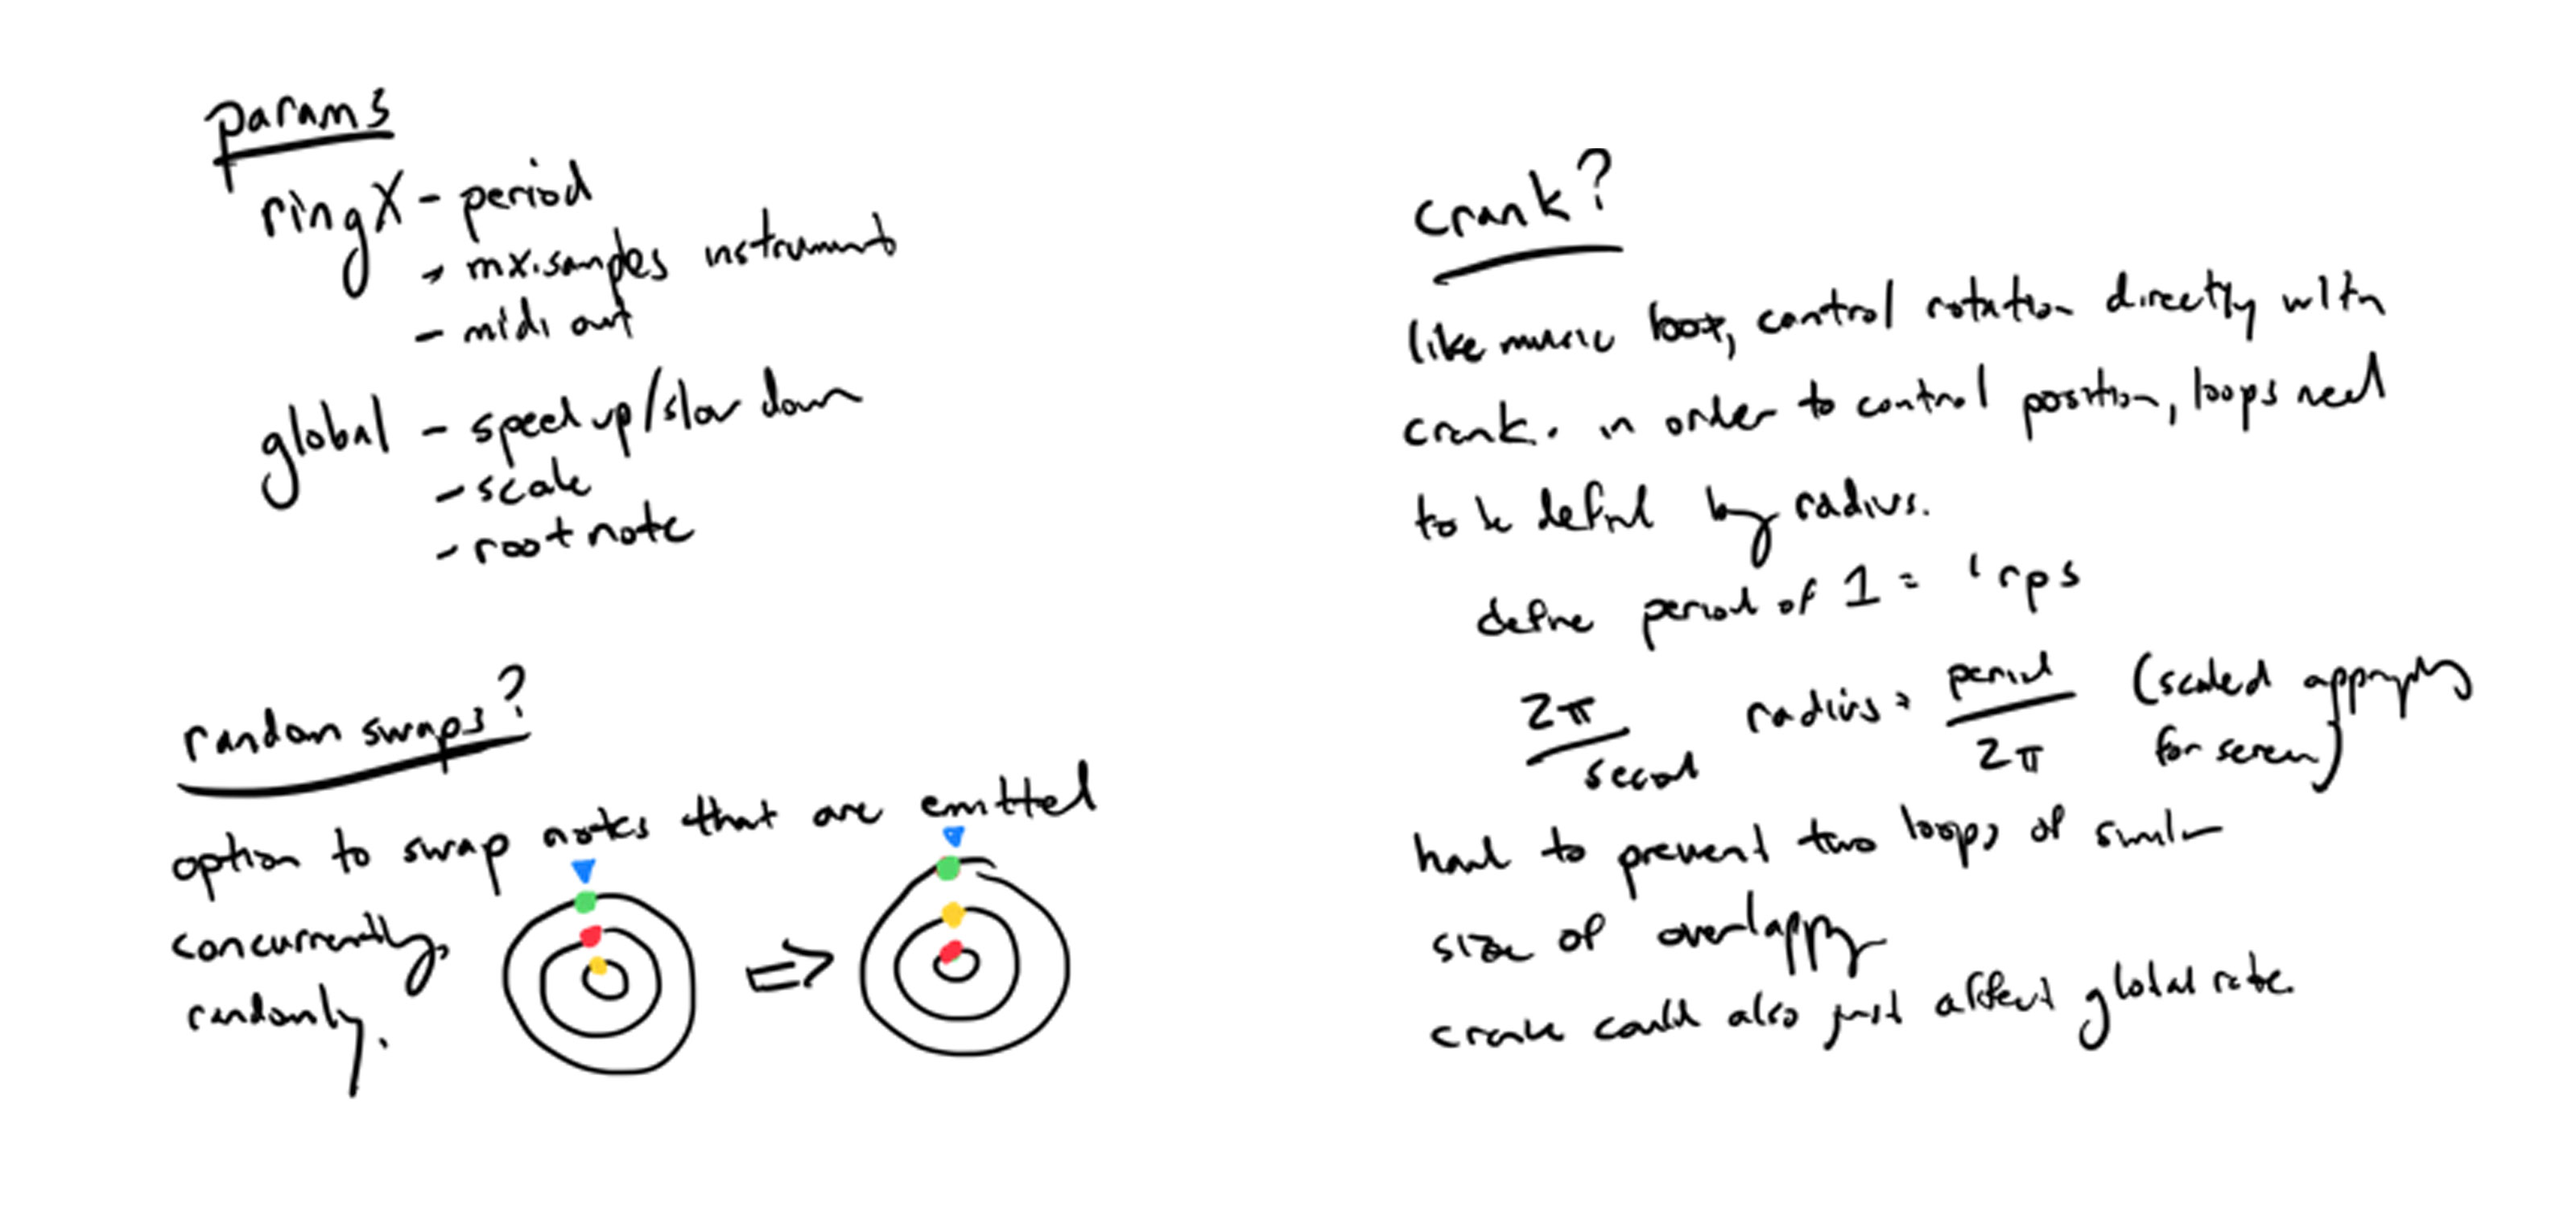 params
ring X - period
- mx.samples instrument
- midi out
global - speed up/slow down
- scale
- root note
random swaps?
option to swap notes that are emitted
concurrently,
randomly.
crank?
like music box, control rotation directly with
crank. in order to control position, loops need
to be defined by radius.
define period of 1 = 1 rps
2π / second radius = period / 2π (scaled appropriately
for screen)
hard to prevent two loops of similar
size of overlapping
crank could also just affect global rate.